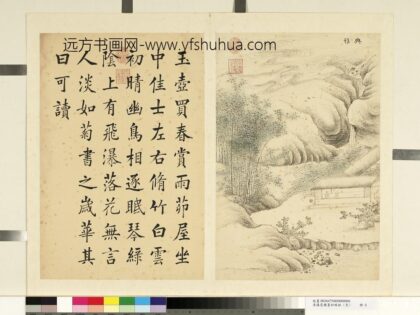 远方书画网- www.yfshuhua.com
典雅
玉壺買春賞雨茆屋坐
中佳士左右脩竹白雲
初晴幽鳥相逐眠琴綠
陰上有飛瀑落花無言
人淡如菊書之歲華其
曰可讀